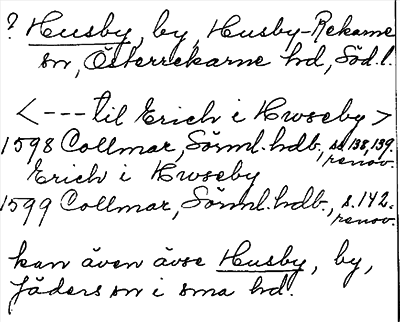 ? Husby, by, Husby-Rekarne
sn, Österrekarne hd, Söd.l.
<---til Erich i Hwseby>
1598 Collmar, Sörml.hdb., ss.138,139.
renov.
Erich i Hwseby
1599 Collmar, Sörml.hdb., s.142.
renov.
kan även avse Husby, by,
Jäders sn i sma hd.